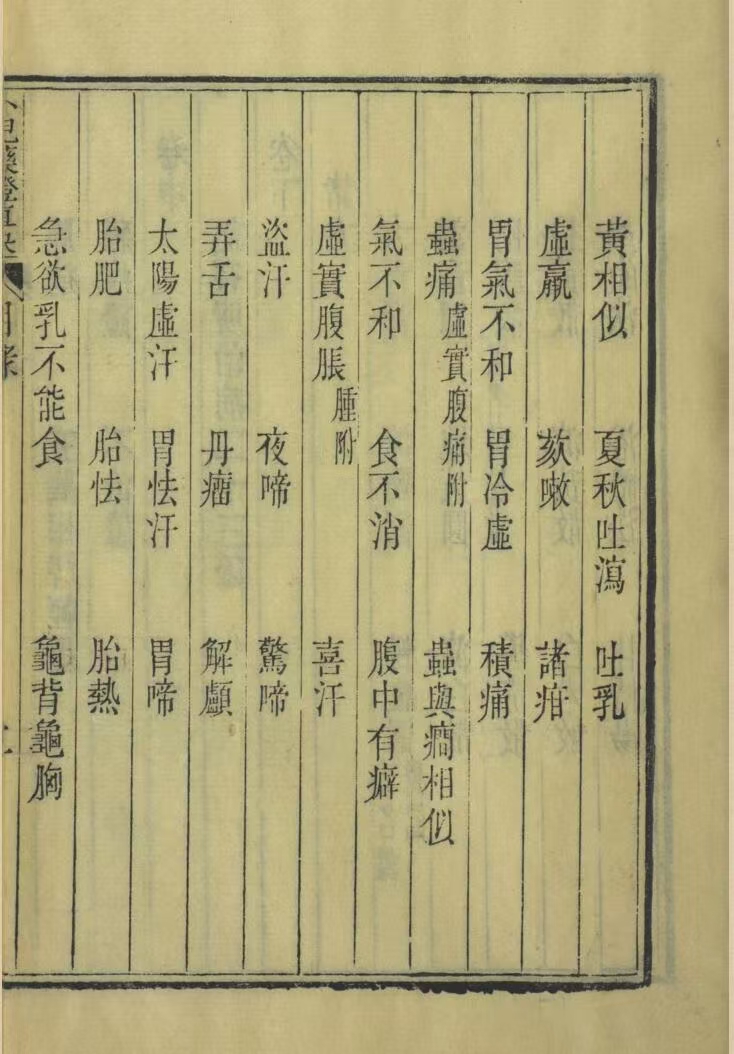 黃相似　夏秋吐瀉　吐乳
虛羸　欬嗽　諸疳
胃氣不和　胃冷虛　積痛
蟲痛虛實腹痛附　蟲與癇相似
氣不和　食不消　腹中有癖
虛實腹脹腫附　喜汗
盜汗　夜啼　驚啼
弄舌　丹瘤　解顱
太陽虛汗　胃怯汗　胃啼
胎肥　胎怯　胎熱
急欲乳不能食　龜背龜胸